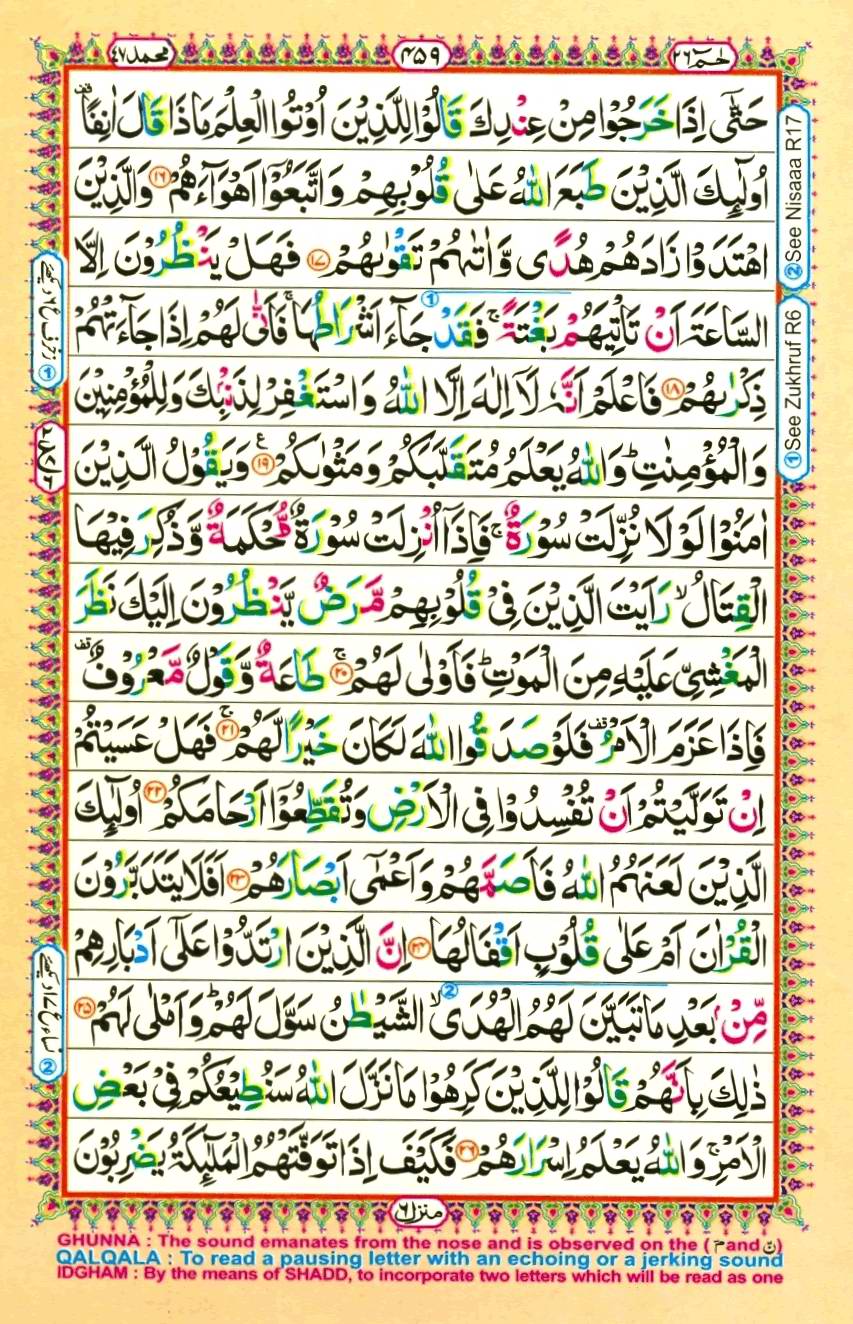 حٰمٓ ٢٦
٤٥٩
محمد ٤٧
حَتّٰۤى اِذَا خَرَجُوْا مِنْ عِنْدِكَ قَالُوْا لِلَّذِيْنَ اُوْتُوا الْعِلْمَ مَاذَا قَالَ اٰنِفًا ۫
اُولٰٓئِكَ الَّذِيْنَ طَبَعَ اللّٰهُ عَلٰى قُلُوْبِهِمْ وَاتَّبَعُوْۤا اَهْوَآءَهُمْ ۝١٦ وَالَّذِيْنَ
اهْتَدَوْا زَادَهُمْ هُدًى وَّاٰتٰىهُمْ تَقْوٰىهُمْ ۝١٧ فَهَلْ يَنْظُرُوْنَ اِلَّا
السَّاعَةَ اَنْ تَاْتِيَهُمْ بَغْتَةً ۚ فَقَدْ جَآءَ اَشْرَاطُهَا ۚ فَاَنّٰى لَهُمْ اِذَا جَآءَتْهُمْ
ذِكْرٰىهُمْ ۝١٨ فَاعْلَمْ اَنَّهٗ لَاۤ اِلٰهَ اِلَّا اللّٰهُ وَاسْتَغْفِرْ لِذَنْۢبِكَ وَلِلْمُؤْمِنِيْنَ
وَالْمُؤْمِنٰتِ ؕ وَاللّٰهُ يَعْلَمُ مُتَقَلَّبَكُمْ وَمَثْوٰىكُمْ ۝١٩ وَيَقُوْلُ الَّذِيْنَ
اٰمَنُوْا لَوْلَا نُزِّلَتْ سُوْرَةٌ ۚ فَاِذَاۤ اُنْزِلَتْ سُوْرَةٌ مُّحْكَمَةٌ وَّذُكِرَ فِيْهَا
الْقِتَالُ ۙ رَاَيْتَ الَّذِيْنَ فِيْ قُلُوْبِهِمْ مَّرَضٌ يَّنْظُرُوْنَ اِلَيْكَ نَظَرَ
الْمَغْشِيِّ عَلَيْهِ مِنَ الْمَوْتِ ؕ فَاَوْلٰى لَهُمْ ۚ ۝٢٠ طَاعَةٌ وَّقَوْلٌ مَّعْرُوْفٌ ۫
فَاِذَا عَزَمَ الْاَمْرُ ۫ فَلَوْ صَدَقُوا اللّٰهَ لَكَانَ خَيْرًا لَّهُمْ ۚ ۝٢١ فَهَلْ عَسَيْتُمْ
اِنْ تَوَلَّيْتُمْ اَنْ تُفْسِدُوْا فِي الْاَرْضِ وَتُقَطِّعُوْۤا اَرْحَامَكُمْ ۝٢٢ اُولٰٓئِكَ
الَّذِيْنَ لَعَنَهُمُ اللّٰهُ فَاَصَمَّهُمْ وَاَعْمٰۤى اَبْصَارَهُمْ ۝٢٣ اَفَلَا يَتَدَبَّرُوْنَ
الْقُرْاٰنَ اَمْ عَلٰى قُلُوْبٍ اَقْفَالُهَا ۝٢٤ اِنَّ الَّذِيْنَ ارْتَدُّوْا عَلٰۤى اَدْبَارِهِمْ
مِّنْۢ بَعْدِ مَا تَبَيَّنَ لَهُمُ الْهُدَى ۙ الشَّيْطٰنُ سَوَّلَ لَهُمْ ؕ وَاَمْلٰى لَهُمْ ۝٢٥
ذٰلِكَ بِاَنَّهُمْ قَالُوْا لِلَّذِيْنَ كَرِهُوْا مَا نَزَّلَ اللّٰهُ سَنُطِيْعُكُمْ فِيْ بَعْضِ
الْاَمْرِ ۚ وَاللّٰهُ يَعْلَمُ اِسْرَارَهُمْ ۝٢٦ فَكَيْفَ اِذَا تَوَفَّتْهُمُ الْمَلٰٓئِكَةُ يَضْرِبُوْنَ
② See Nisaaa R17
① See Zukhruf R6
① زخرف ع٦ دیکھئے
② نساء ع١٧ دیکھئے
منزل ٦
GHUNNA : The sound emanates from the nose and is observed on the ( م and ن )
QALQALA : To read a pausing letter with an echoing or a jerking sound
IDGHAM : By the means of SHADD, to incorporate two letters which will be read as one